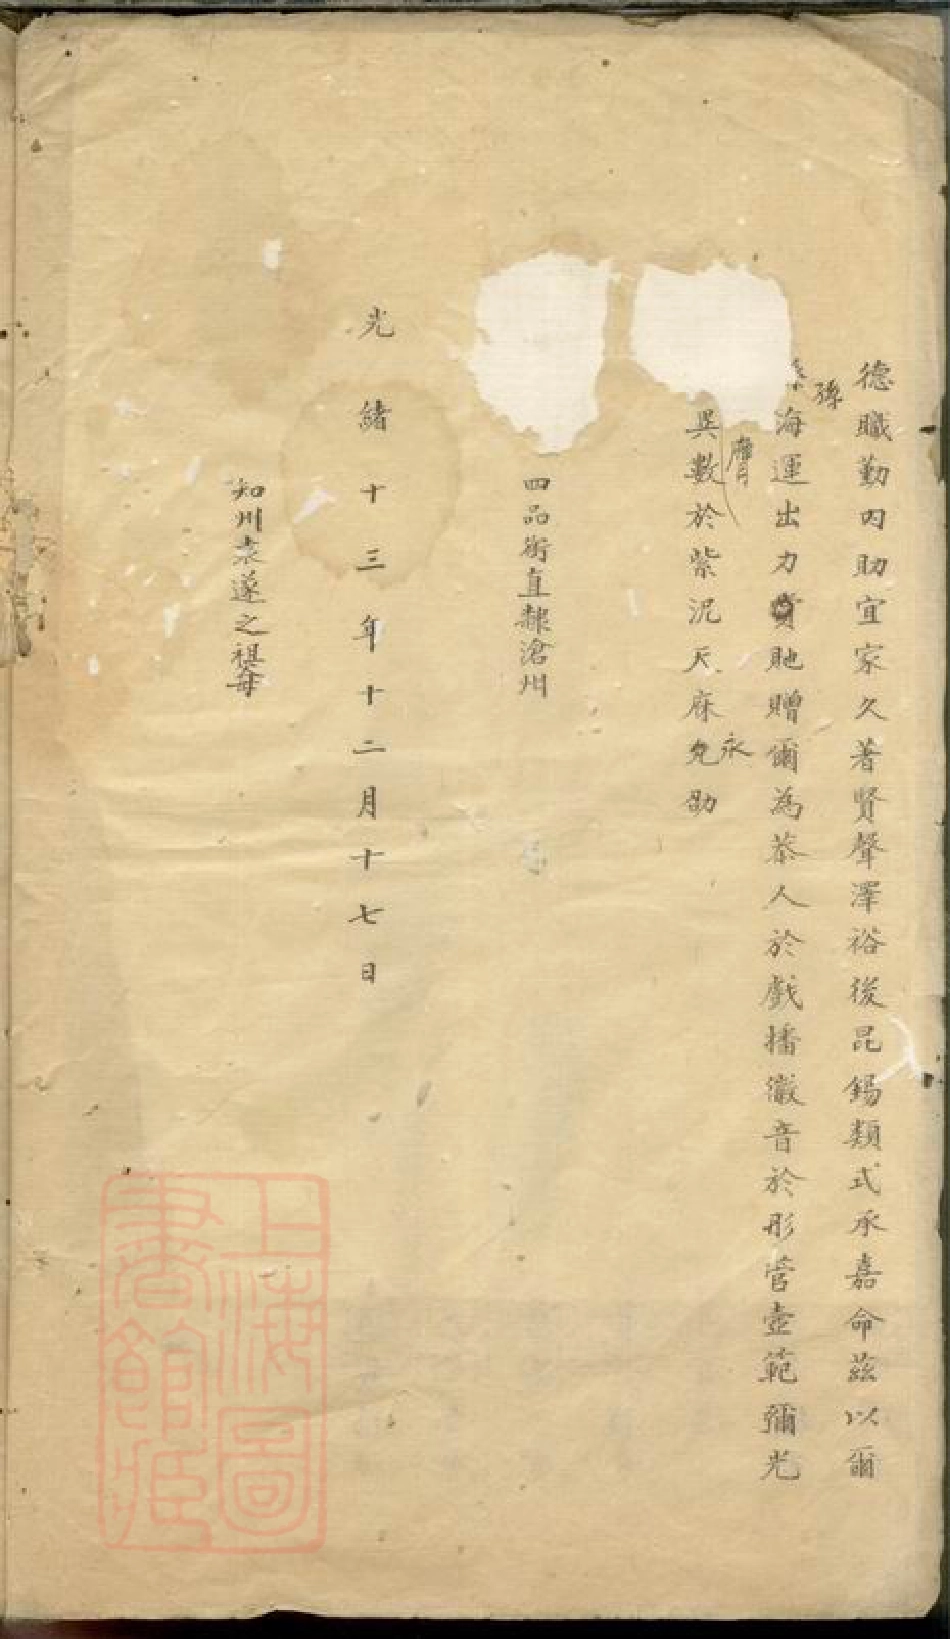 德職勤内助宜家久著賢聲澤裕後昆錫類式承嘉命茲以爾
孫
海運出力貤贈爾為恭人於戲播徽音於彤管壼範彌光
膺
異數於紫泥天庥允劭
永
四品銜直隸滄州
光緒十三年十二月十七日
知州袁遂之祖母
上海圖
書館藏